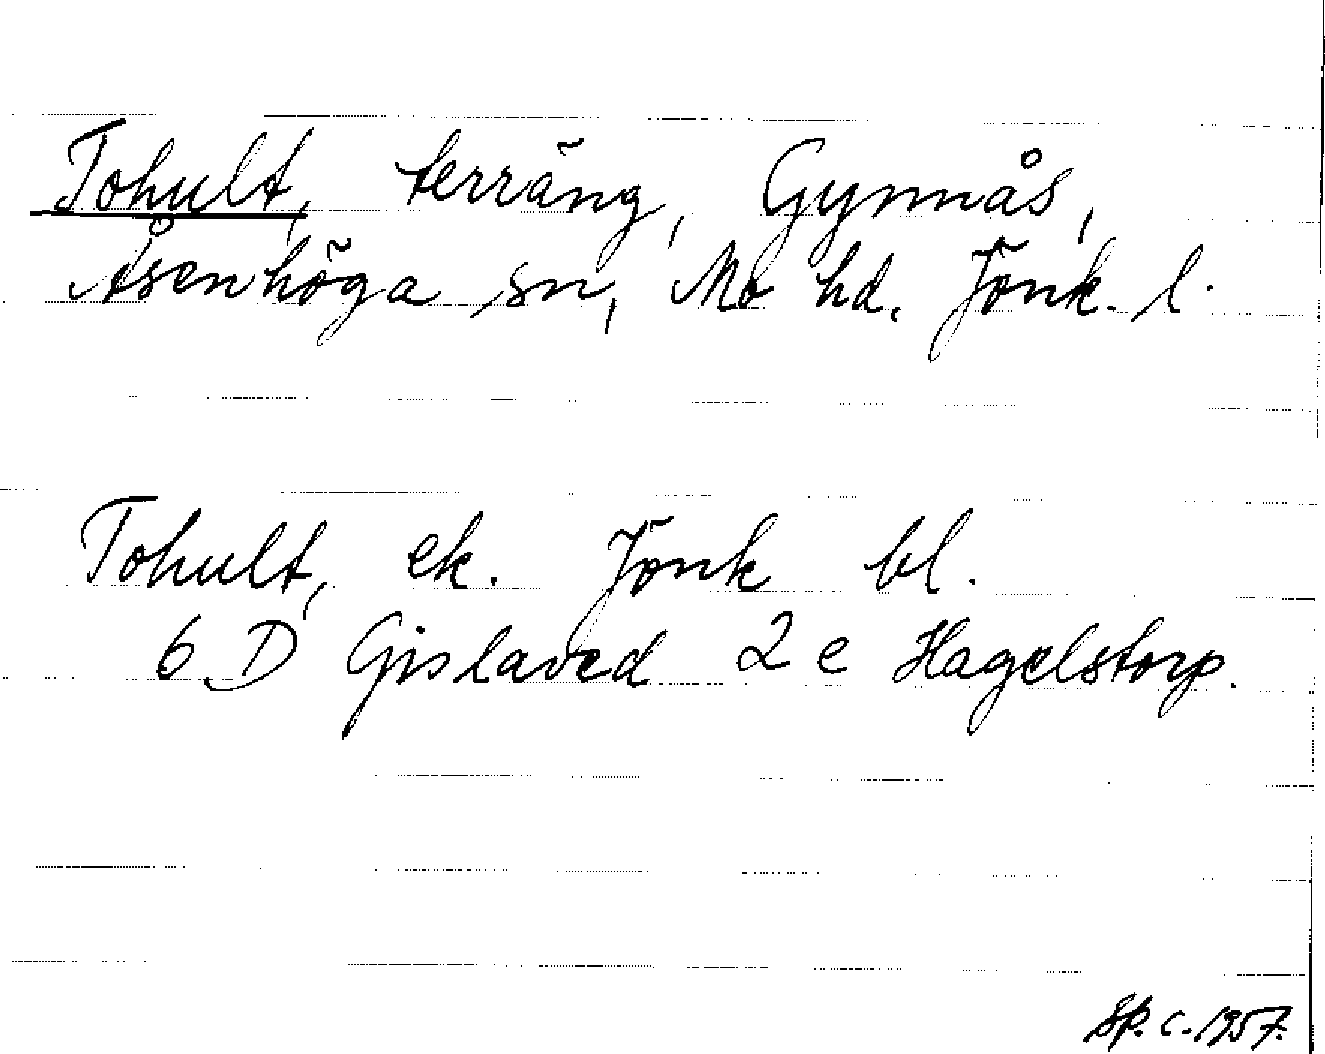 Tohult, terräng, Gynnås,
Åsenhöga sn, Mo hd. Jönk. l.
Tohult, ek. Jönk bl.
6 D Gislaved 2 e Hagelstorp.
Sp. c. 1957.